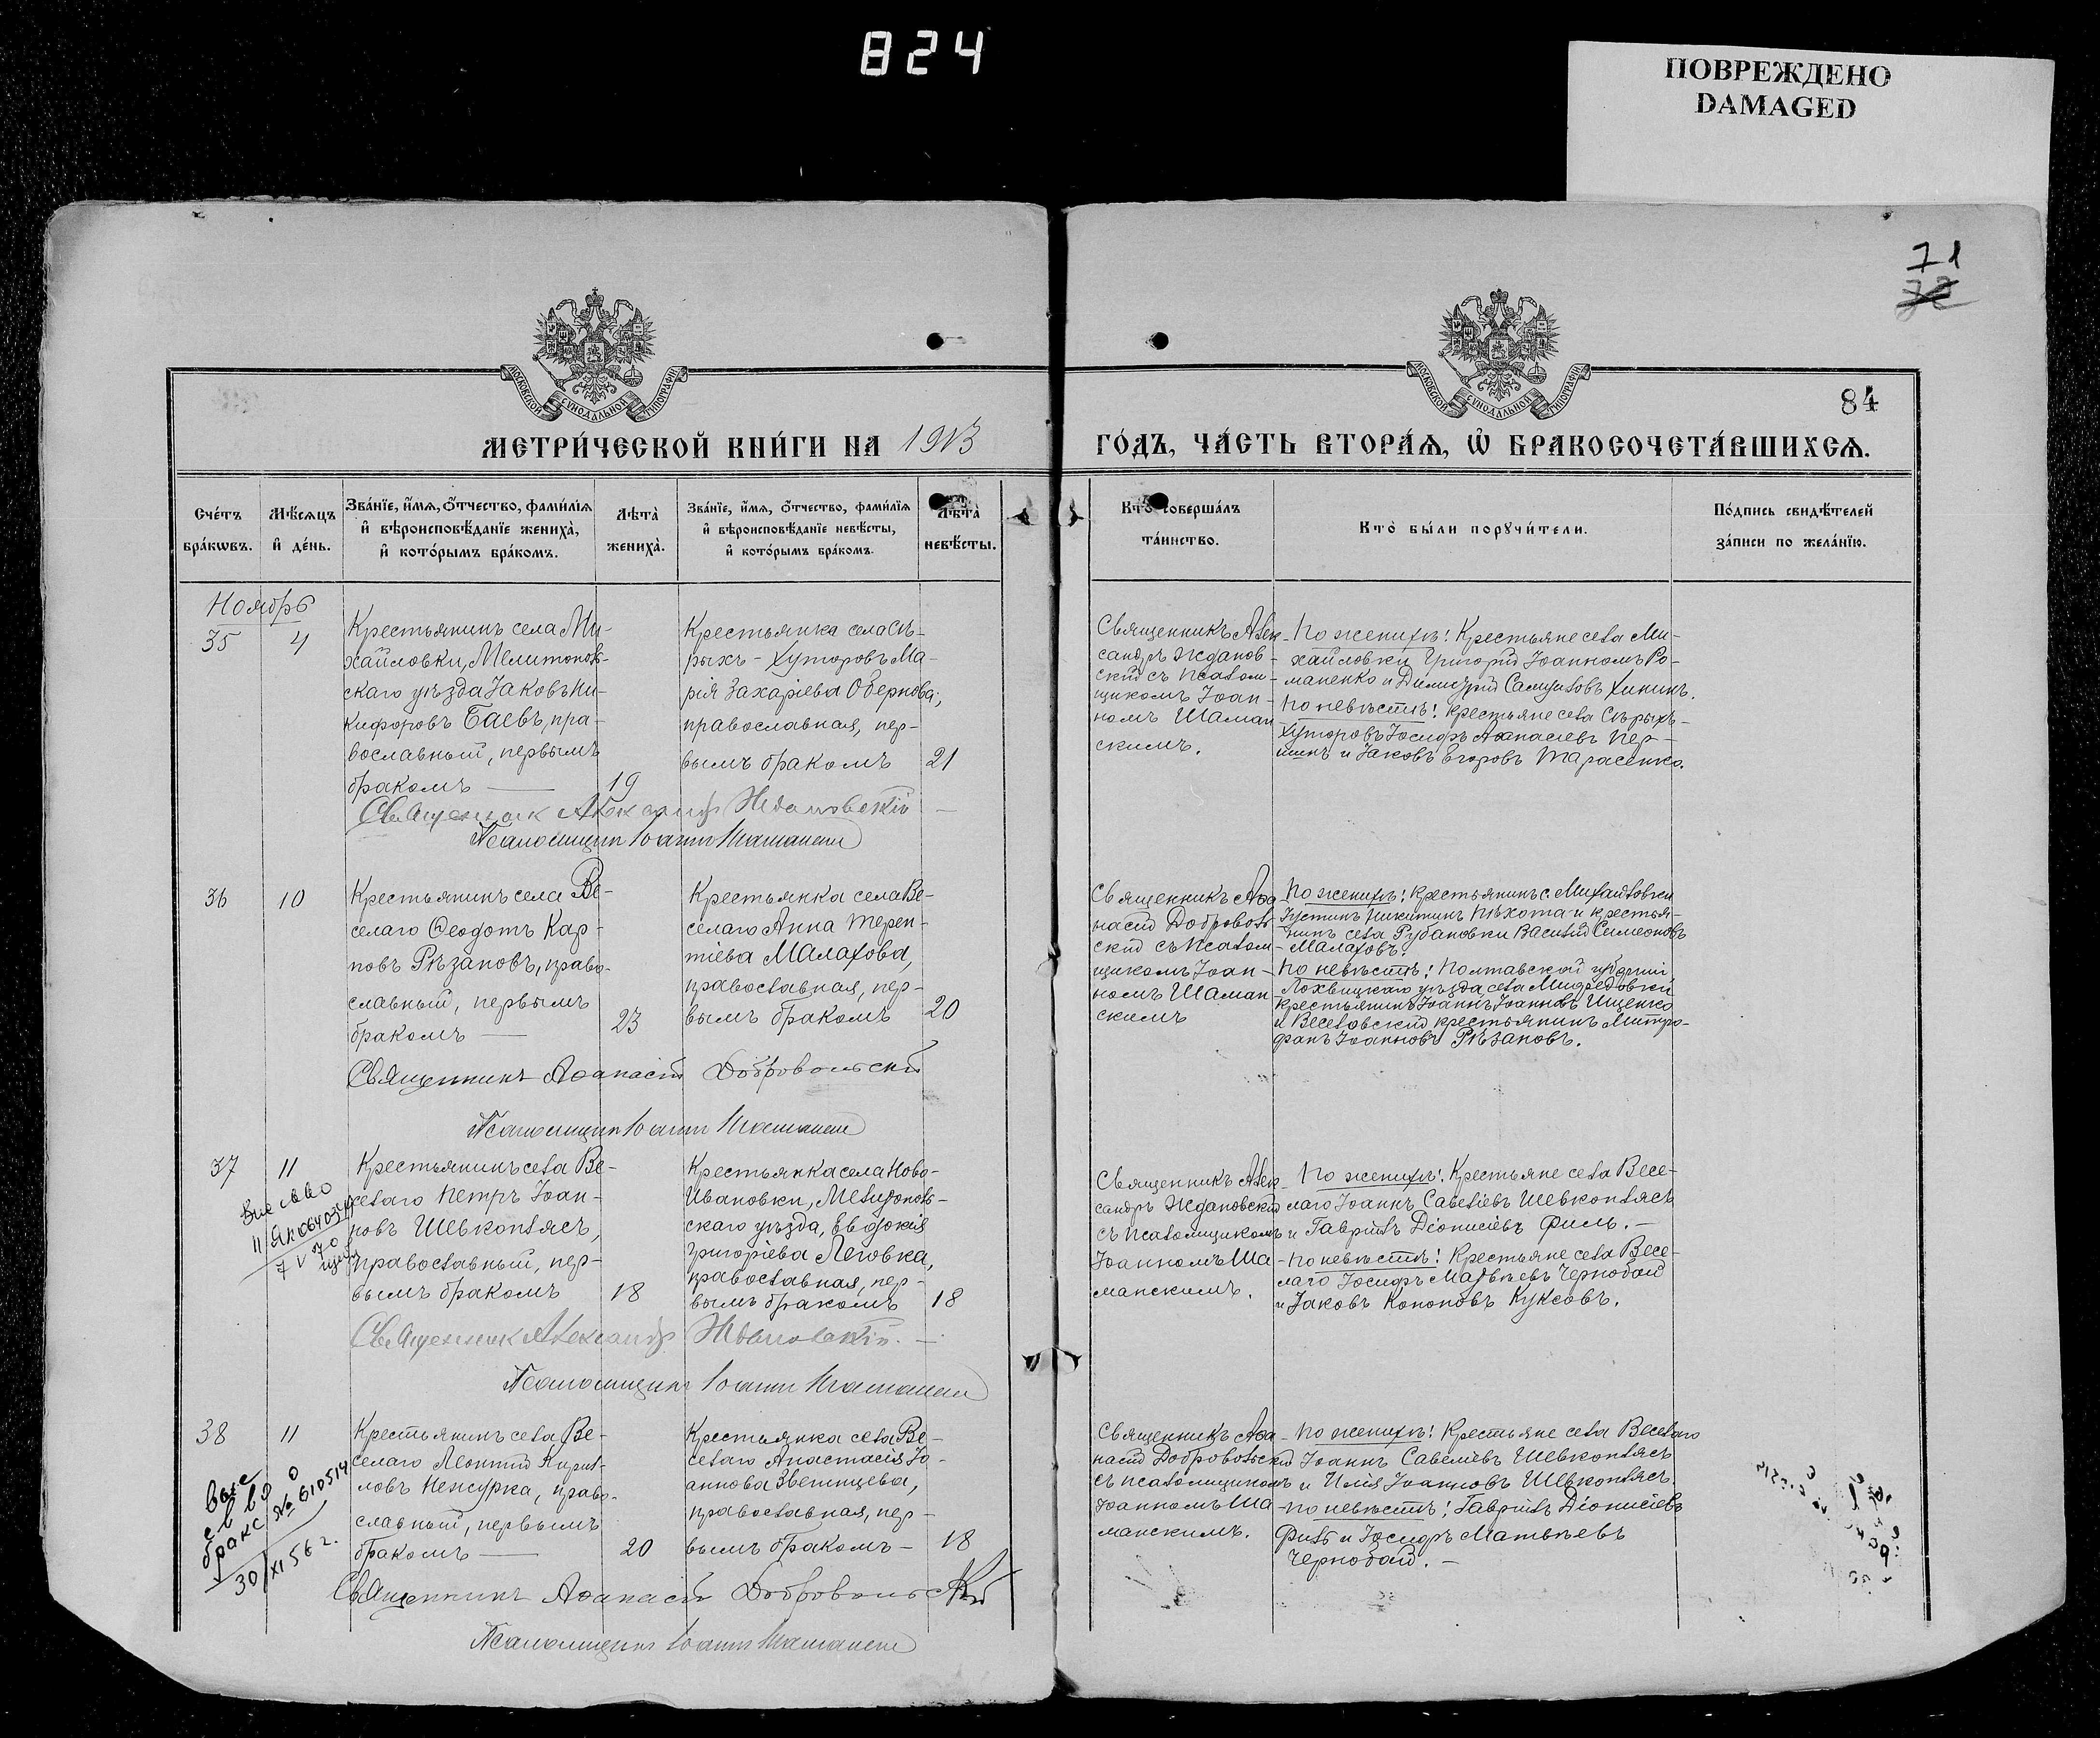 824
ПОВРЕЖДЕНО
DAMAGED
71
72
МОСКОВСКОЙ СУНОДАЛЬНОЙ ТИПОГРАФІИ
МОСКОВСКОЙ СУНОДАЛЬНОЙ ТИПОГРАФІИ
84
МЕТРИ́ЧЕСКОЙ КНИ́ГИ НА 1913
ГО́ДЪ, ЧА́СТЬ ВТОРА́Я, Ѡ БРАКОСОЧЕТА́ВШИХСЯ.
Сче́тъ
бра́кѡвъ.
Мѣ́сяцъ
и҆ де́нь.
Зва́нїе, и҆́мя, о҆́тчество, фами́лїя
и҆ вѣроисповѣ́данїе жениха̀,
и҆ кото́рымъ бра́комъ.
Лѣта̀
жениха̀.
Зва́нїе, и҆́мя, о҆́тчество, фами́лїя
и҆ вѣроисповѣ́данїе невѣ́сты,
и҆ кото́рымъ бра́комъ.
Лѣта̀
невѣ́сты.
Кто̀ соверша́лъ
та́инство.
Кто̀ бы́ли порꙋчи́тели.
По́дпись свидѣ́телей
за́писи по жела́нїю.
Ноябрь
35
4
Крестьянинъ села Ми-
хайловки, Мелитополь-
скаго уѣзда Іаковъ Ни-
кифоровъ Баевъ, пра-
вославный, первымъ
бракомъ —
19
Крестьянка села Сѣ-
рыхъ-Хуторовъ Ма-
рія Захаріева Обернова,
православная, пер-
вымъ бракомъ
21
Священникъ Алек-
сандръ Ждановс-
кій съ псалом-
щикомъ Іоан-
номъ Шаман-
скимъ.
По женихѣ: Крестьяне села Ми-
хайловки Григорій Іоанномъ Ро-
маненко и Димитрій Самуиловъ Хининъ.
По невѣстѣ: крестьяне села Сѣрыхъ-
Хуторовъ Іосифъ Аѳанасіевъ Пер-
шинъ и Іаковъ Егоровъ Тарасенко.
Священник Александр Ждановскій —
Псаломщикъ Іоаннъ Шаманскій
36
10
Крестьянинъ села Ве-
селаго Ѳеодотъ Кар-
повъ Рѣзановъ, право-
славный, первымъ
бракомъ —
23
Крестьянка села Ве-
селаго Анна Терен-
тіева Малахова,
православная, пер-
вымъ бракомъ
20
Священникъ Аѳа-
насій Доброволь-
скій съ псалом-
щикомъ Іоан-
номъ Шаман-
скимъ
По женихѣ: Крестьянинъ с. Михайловки
Іустинъ Никитинъ Пѣхота и крестья-
нинъ села Рубановки Василій Симеоновъ
Малаховъ.
По невѣстѣ: Полтавской губерніи,
Лохвицкаго уѣзда, села
крестьянинъ Іоаннъ Іоанновъ Ищенко
и Веселовскій крестьянинъ Митро-
фанъ Іоанновъ Рѣзановъ.
Священникъ Аѳанасій Добровольскій
Псаломщикъ Іоаннъ Шаманскій
37
11
Крестьянинъ села Ве-
селаго Петръ Іоан-
новъ Шевкоплясъ,
православный, пер-
вымъ бракомъ
18
Крестьянка села Ново-
Ивановки, Мелитополь-
скаго уѣзда, Евдокія
Григоріева Леговка,
православная, пер-
вымъ бракомъ
18
Священникъ Алек-
сандръ Ждановскій
съ псаломщикомъ
Іоанномъ Ша-
манскимъ.
По женихѣ: Крестьяне села Весе-
лаго Іоаннъ Савеліевъ Шевкоплясъ
и Гавріилъ Діонисіевъ Филь. —
По невѣстѣ: Крестьяне села Весе-
лаго Іосифъ Матвѣевъ Чернобай
и Іаковъ Кононовъ Куксовъ.
Священник Александр Ждановскій. —
Псаломщикъ Іоаннъ Шаманскій
38
11
выс
св во о
браке № 610514
30/XI 56 г.
Крестьянинъ села Ве-
селаго Леонтій Кирил-
ловъ Ненсурка, право-
славный, первымъ
бракомъ —
20
Крестьянка села Ве-
селаго Анастасія Іо-
аннова Звегинцева,
православная, пер-
вымъ бракомъ —
18
Священникъ Аѳа-
насій Добровольскій
съ псаломщикомъ
Іоанномъ Ша-
манскимъ.
По женихѣ: Крестьяне села Веселаго
Іоаннъ Савеліевъ Шевкоплясъ
и Илія Іоанновъ Шевкоплясъ.
По невѣстѣ: Гавріилъ Діонисіевъ
Филь и Іосифъ Матвѣевъ
Чернобай. —
Священникъ Аѳанасій Добровольскій
Псаломщикъ Іоаннъ Шаманскій